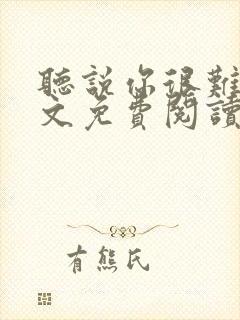 聽說你很難
文免費閱讀
有熊氏